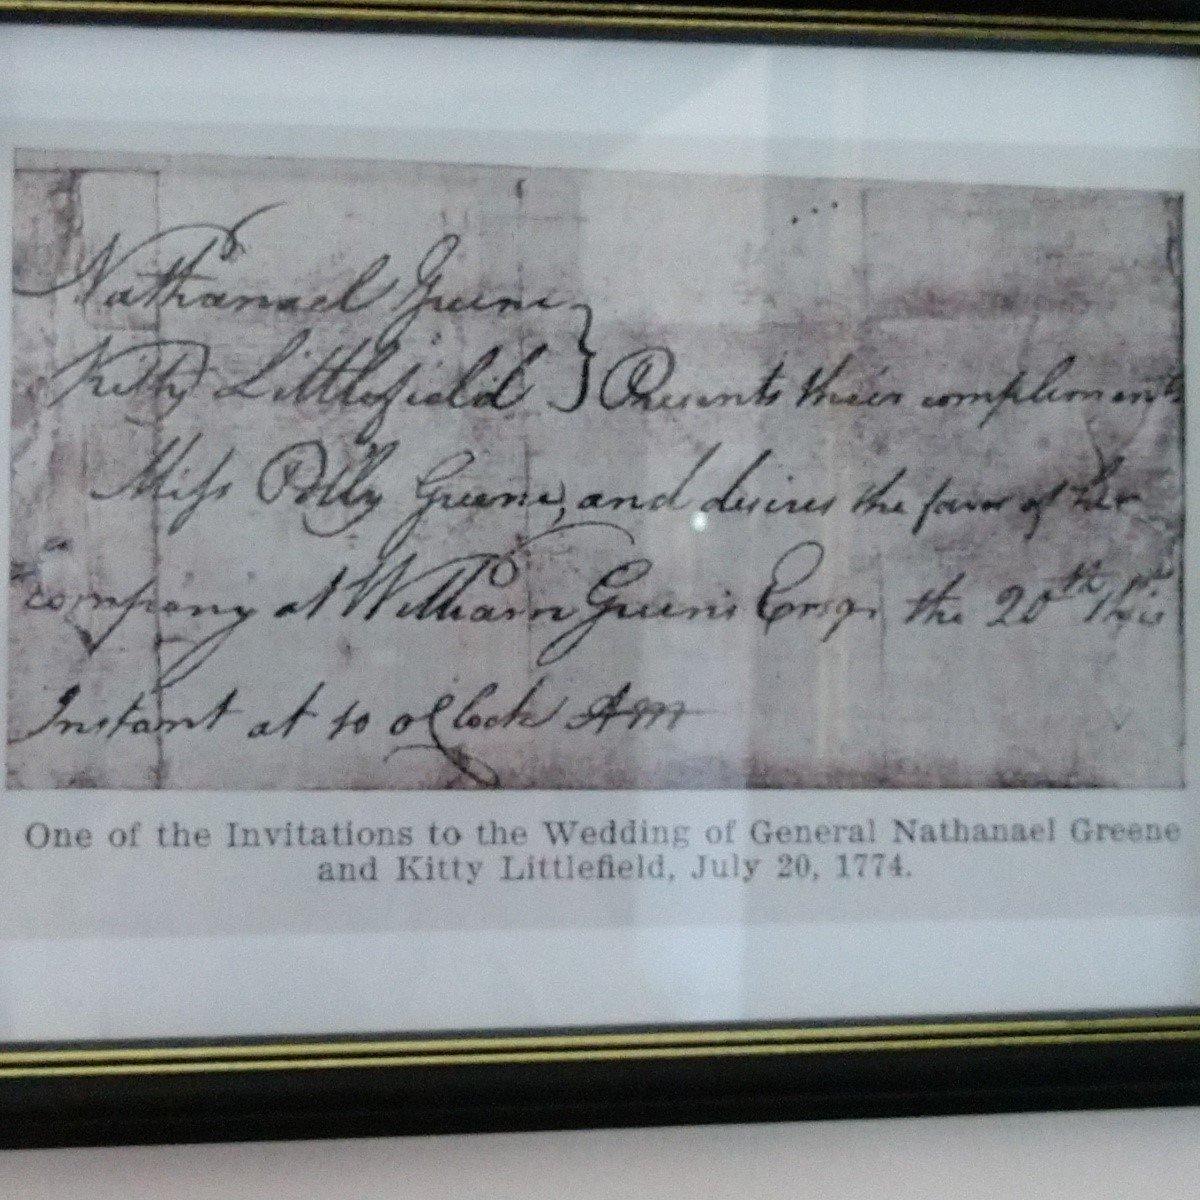 Nathanael Greene
Kitty Littlefield } Presents their compliments
Miss Polly Greene, and desires the favor of her
company at William Greene's Esqr. the 20th
Instant at 10 oClock AM
One of the Invitations to the Wedding of General Nathanael Greene
and Kitty Littlefield, July 20, 1774.